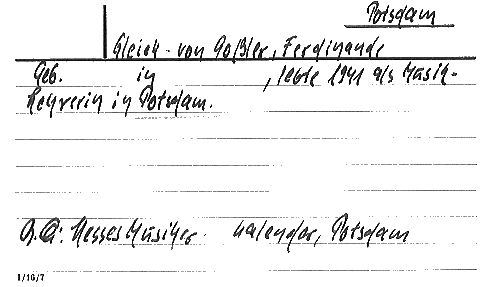 Potsdam
Gleich - von Goßler, Ferdinande
Geb. in , lebte 1941 als Musik-
lehrerin in Potsdam.
Q.A: Hesses Musiker- Kalender, Potsdam
1/16/7